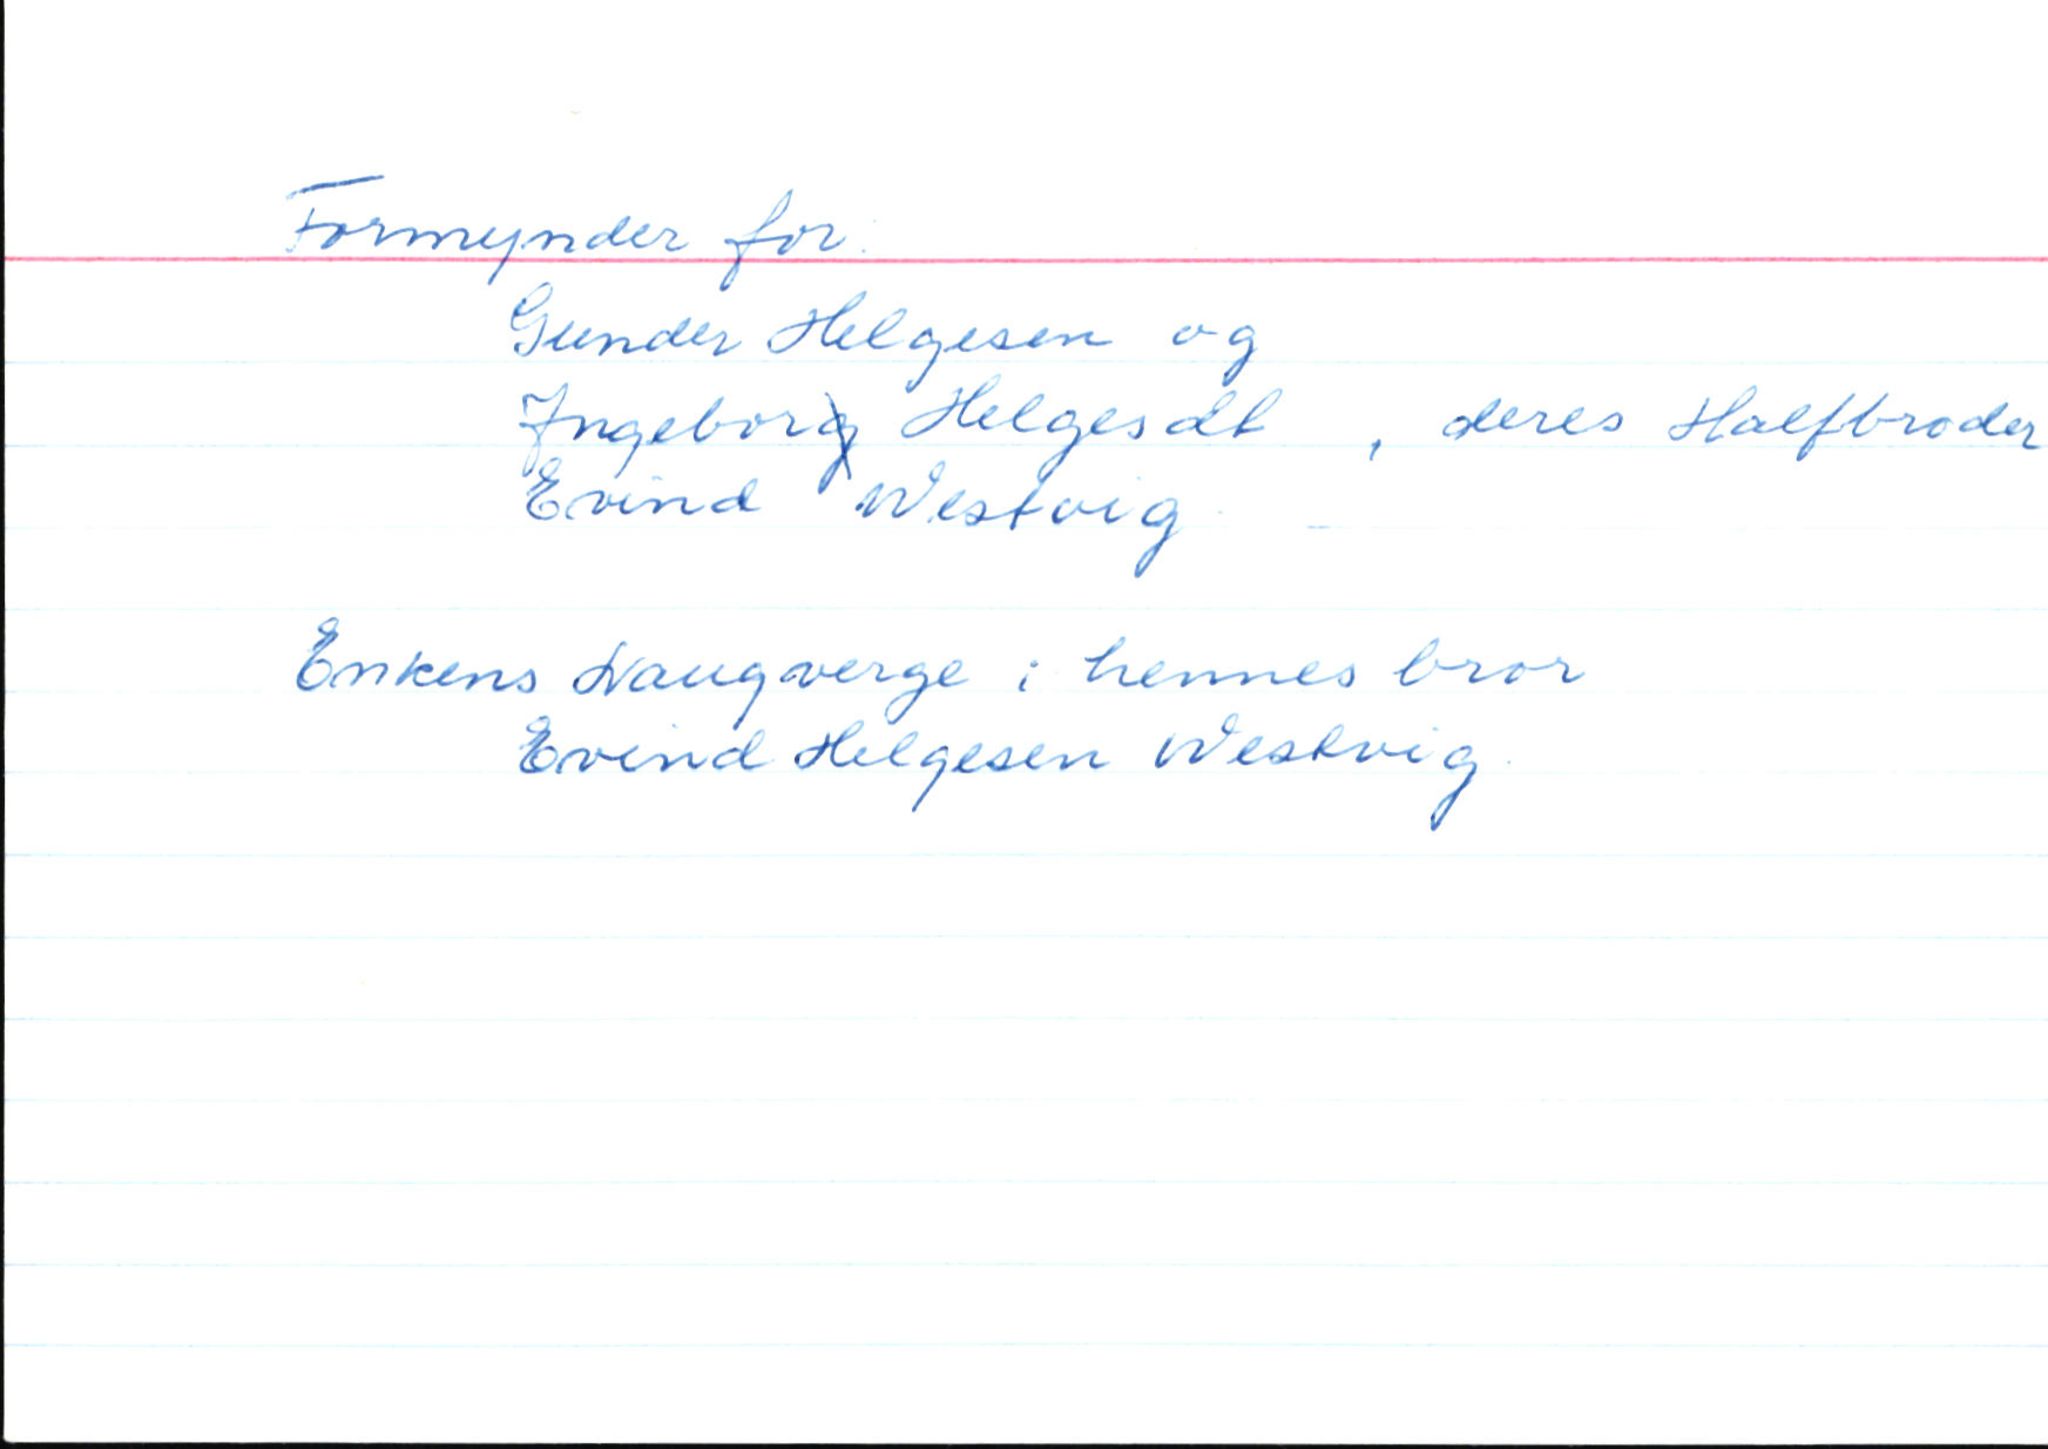 Formynder for:
Gunder Helgesen og
Ingebor Helgesdt , deres Halfbroder
Evind Westvig
Enkens Laugverge : hennes bror
Evind Helgesen Westvig.